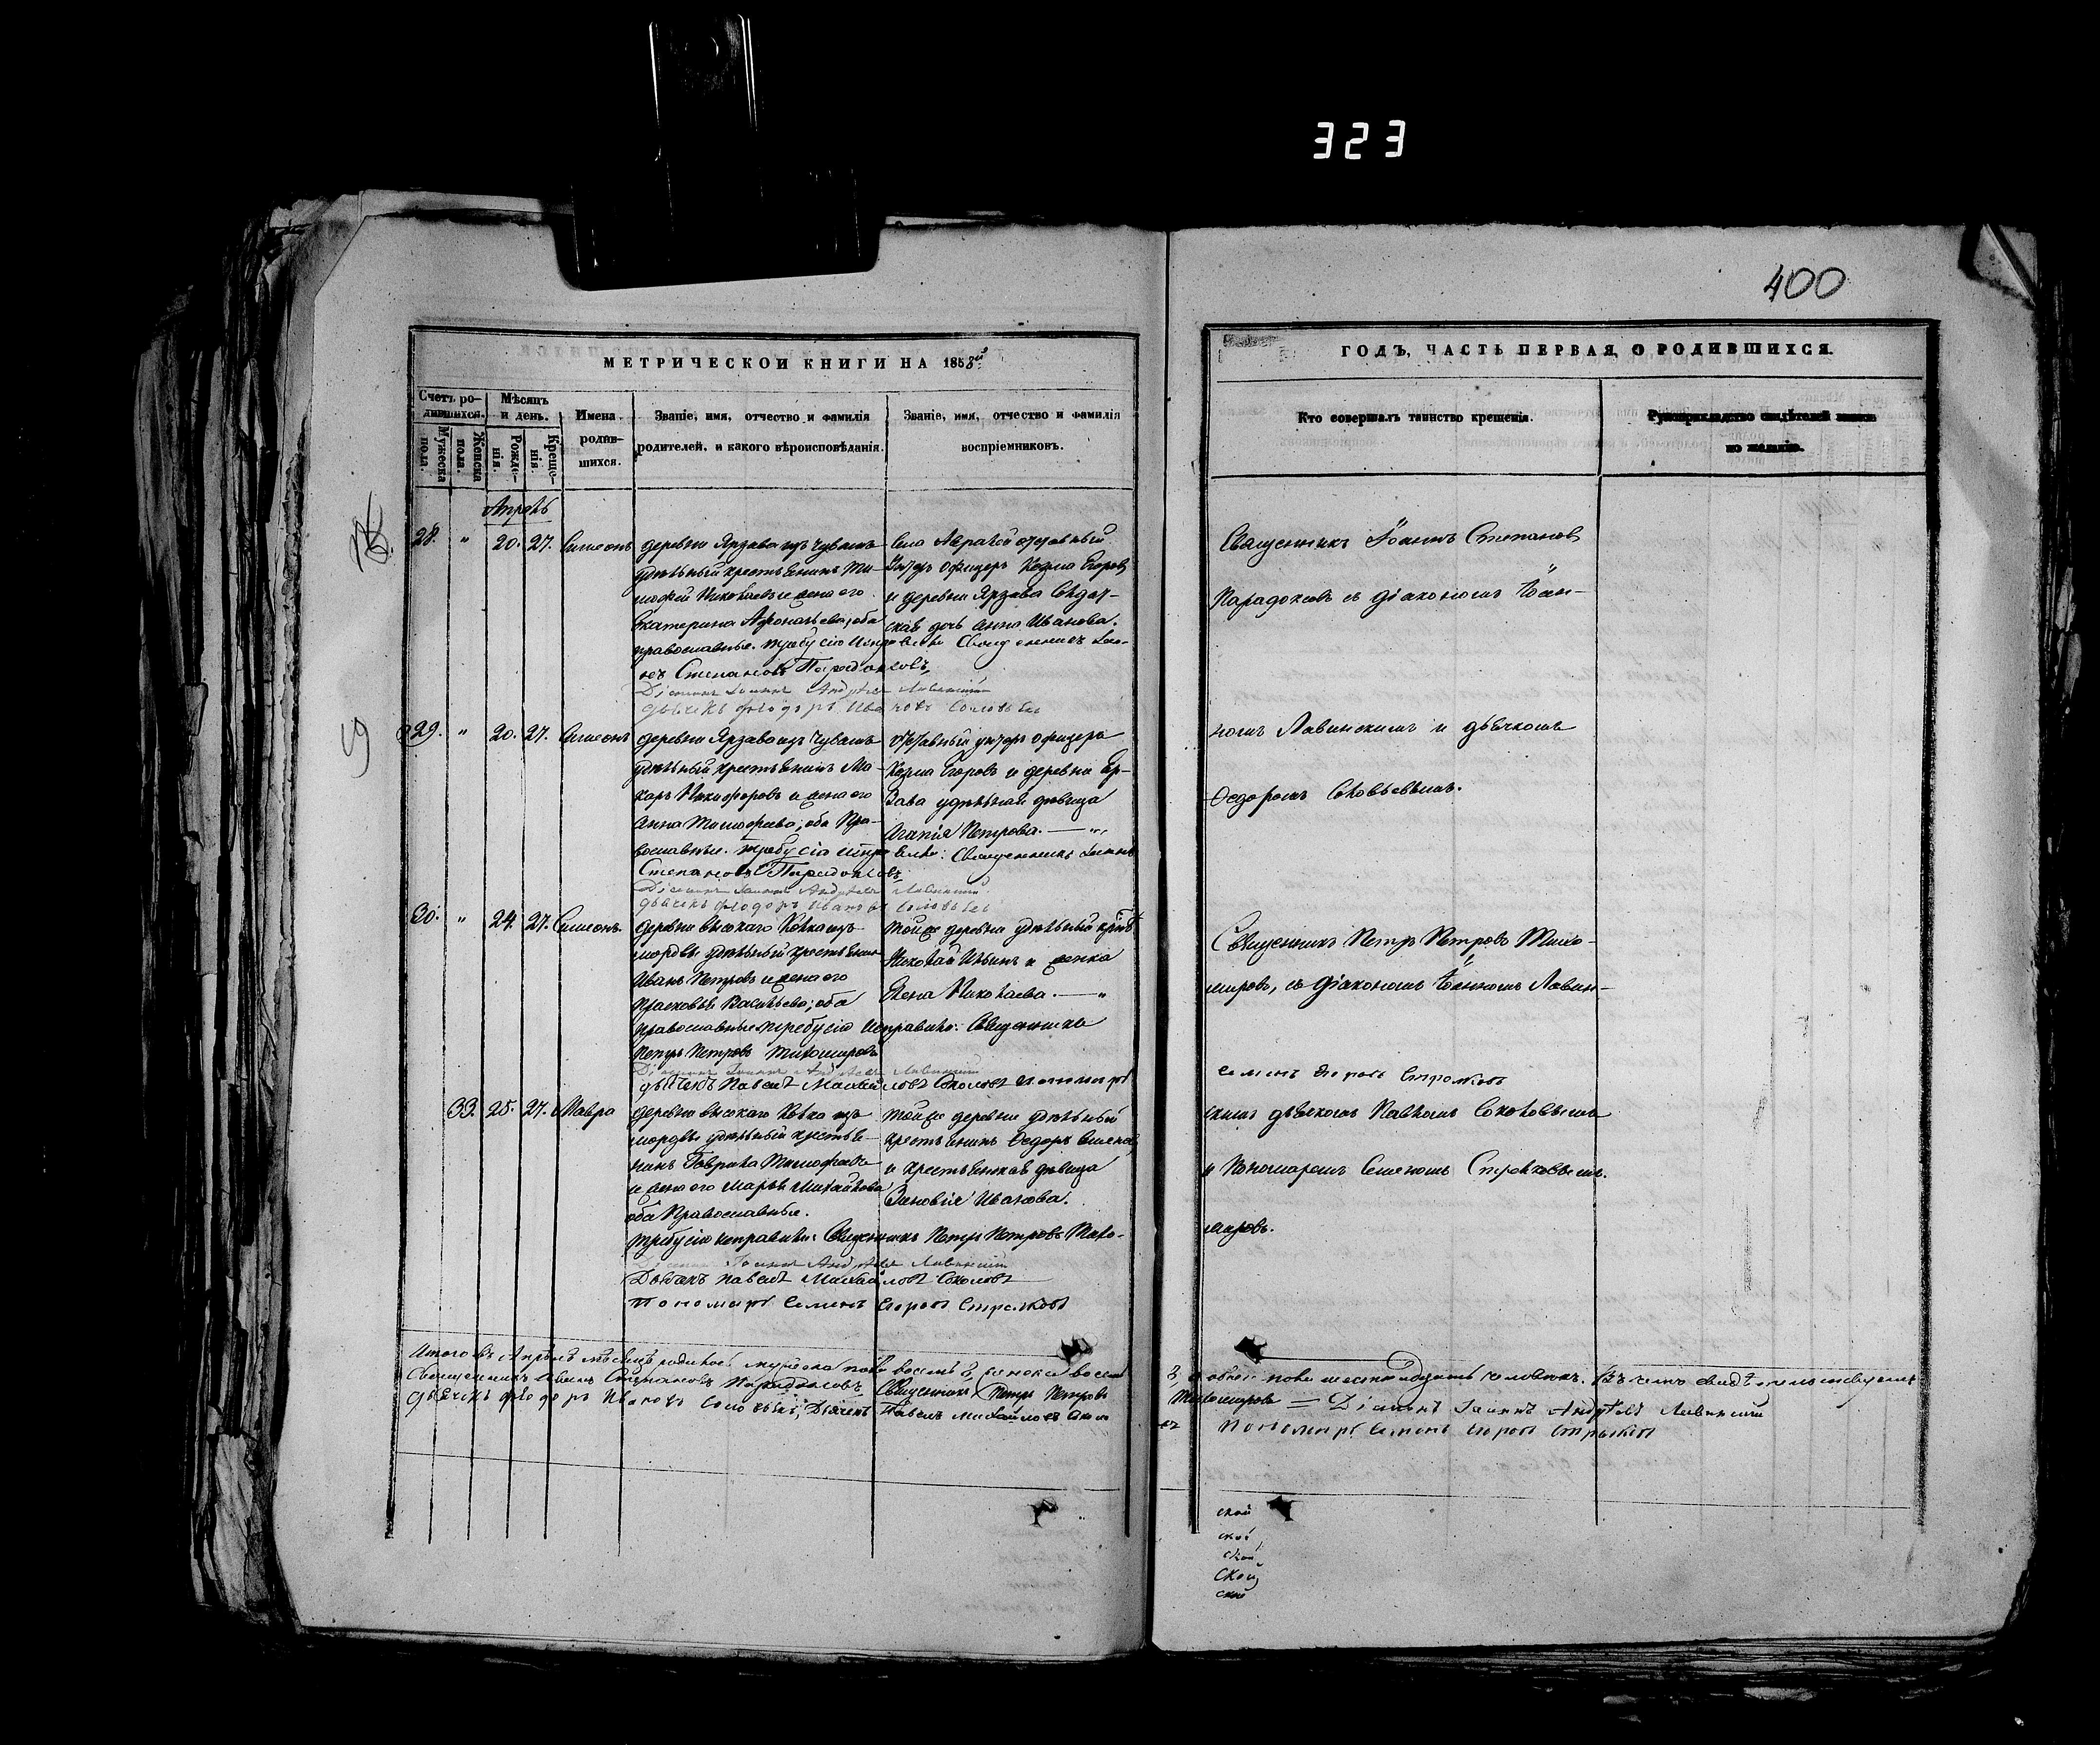 323
400
МЕТРИЧЕСКОЙ КНИГИ НА 1858й
ГОДЪ, ЧАСТЬ ПЕРВАЯ, О РОДИВШИХСЯ.
Счетъ ро-
дившихся.
Мужеска
пола.
Женска
пола.
Мѣсяцъ
и день.
Рожде-
нія.
Креще-
нія.
Имена
родив-
шихся.
Званіе, имя, отчество и фамилія
родителей, и какого вѣроисповѣданія.
Званіе, имя, отчество и фамилія
воспріемниковъ.
Кто совершалъ таинство крещенія.
Рукоприкладство свидѣтелей записи
по желанію.
Апрѣль
28. " 20. 27. Симеонъ
деревни Ярзава изъ Чувашъ
удѣльный крестьянинъ Ти-
мофей Николаевъ и жена его
Екатерина Афонасьева; оба
православные.
Степановъ Парадоксовъ
Діаконъ Іоаннъ Андреевъ Лавинскій
дьячекъ Ѳеодоръ Ивановъ Соловьевъ
отставный
Унтеръ офицеръ Козма Егоровъ
и деревни Ярзава Солдат-
ская дочь Анна Иванова.
Священникъ Іоаннъ Степановъ
Парадоксовъ съ діакономъ Іоан-
номъ Лавинскимъ и дьячкомъ
Ѳедоромъ Соловьевымъ.
29. " 20. 27. Симеонъ
деревни Ярзава изъ Чувашъ
удѣльный крестьянинъ Ма-
каръ Никифоровъ и жена его
Анна Тимофеева; оба Пра-
вославные.
Степановъ Парадоксовъ
Діаконъ Іоаннъ Андреевъ Лавинскій
дьячекъ Ѳеодоръ Ивановъ Соловьевъ
отставный унтеръ офицеръ
Козма Егоровъ и деревни Яр-
зава удѣльная дѣвица
Агапія Петрова.
30. " 24. 27. Симеонъ.
деревни высокаго Колка изъ
мордвы удѣльный крестьянинъ
Иванъ Петровъ и жена его
Прасковья Васильева; оба
православные Священникъ
Петръ Петровъ Тихомировъ
Діаконъ Іоаннъ Андреевъ Лавинскій
дьячекъ Павелъ Михайловъ Соколовъ пономарь
Семенъ Егоровъ Стрелковъ
тойже деревни удѣльный
Николай Ильинъ и женка
Елена Николаева.
Священникъ Петръ Петровъ Тихо-
мировъ, съ діакономъ Іоанномъ Лавин-
скимъ дьячкомъ Павломъ Соколовымъ
и Пономаремъ Семеномъ Стрелковымъ.
33. 25. 27. Мавра
деревни высокаго Колка изъ
мордвы удѣльный крестья-
нинъ Гаврила Тимофеевъ
и жена его Марья Михайлова
оба Православные.
Священникъ Петръ Петровъ Тихо-
мировъ.
Діаконъ Іоаннъ Андреевъ Лавинскій
Дьячекъ Павелъ Михайловъ Соколовъ
Пономарь Семенъ Егоровъ Стрелковъ
тойже деревни удѣльный
крестьянинъ Ѳедоръ
и крестьянская дѣвица
Зиновія Иванова.
Итого въ Апрѣлѣ мѣсяцѣ родилось мужеска пола восемь 8, женска восемь
8, а обоего пола шестьнадцать человѣкъ. Въ чемъ свидѣтельствуемъ
Священникъ Іоаннъ Степановъ Парадоксовъ Священникъ Петръ Петровъ
Тихомировъ Діаконъ Іоаннъ Андреевъ Лавинскій
дьячекъ Ѳеодоръ Ивановъ Соловьевъ, Дьячекъ Павелъ Михайловъ Соколо
въ Пономарь Семенъ Егоровъ Стрелковъ
ской
ской
ской
ской
ской